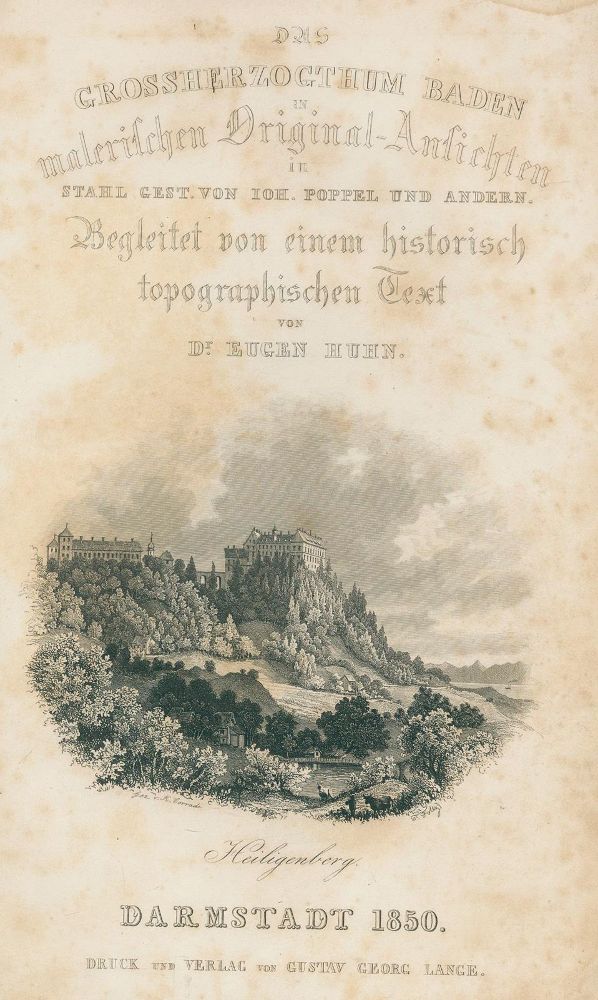 DAS
GROSSHERZOGTHUM BADEN
IN
malerischen Original-Ansichten
in
STAHL GEST. VON IOH. POPPEL UND ANDERN.
Begleitet von einem historisch
topographischen Text
VON
Dr EUGEN HUHN.
Heiligenberg.
DARMSTADT 1850.
DRUCK UND VERLAG VON GUSTAV GEORG LANGE.